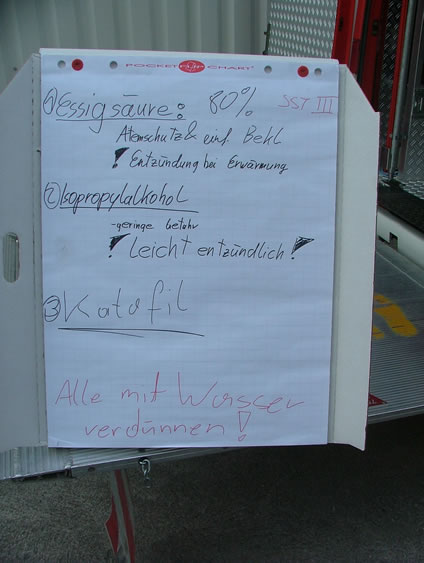 POCKET CHART
① Essigsäure: 80% SST III
Atemschutz & einf. Bekl
! Entzündung bei Erwärmung
② Isopropylalkohol
-geringe Gefahr
! Leicht entzündlich!
③ Katafil
Alle mit Wasser
verdünnen!